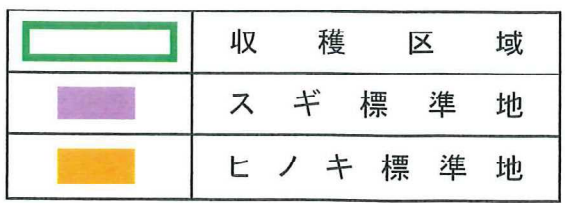 収穫区域
スギ標準地
ヒノキ標準地